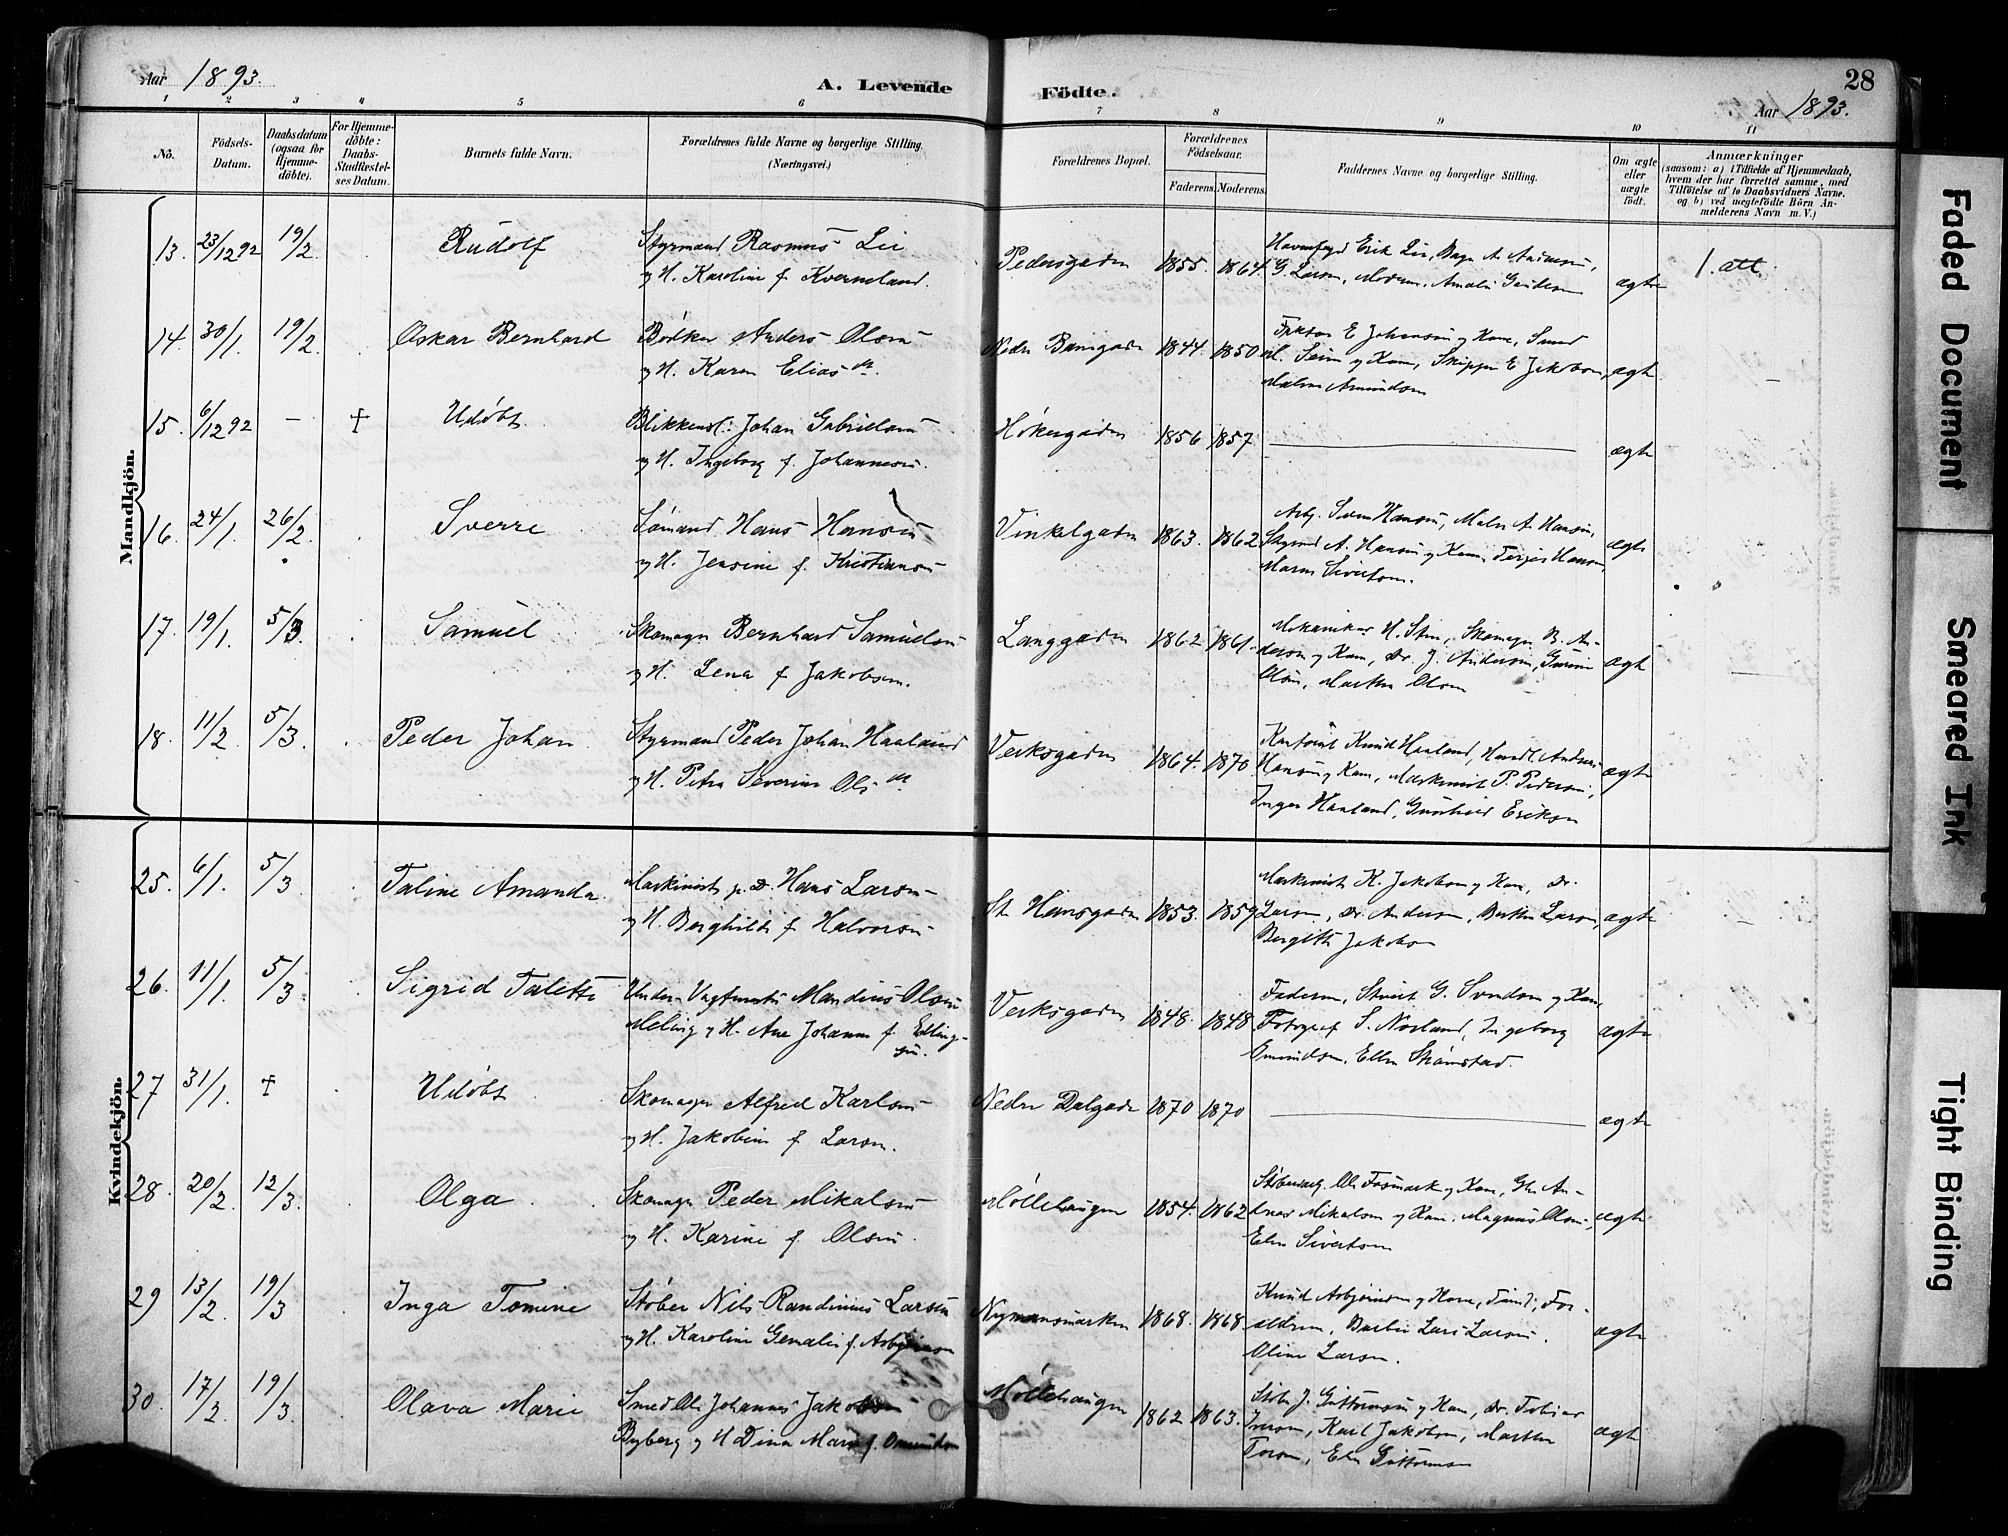 Aar 1893.
A. Levende
Födte.
28
Aar 1893.
1 2 3 4 5 6 7 8 9 10 11
No.
Födsels-
Datum.
Daabsdatum
(ogsaa for
Hjemme-
döbte).
For Hjemme-
döbte:
Daabs-
Stadfæstel-
ses Datum.
Barnets fulde Navn.
Forældrenes fulde Navne og borgerlige Stilling.
(Næringsvei.)
Forældrenes Bopæl.
Forældrenes
Födselsaar.
Faderens. Moderens.
Faddernes Navne og borgerlige Stilling.
Om ægte
eller
uægte
födt.
Anmærkninger
(saasom: a) i Tilfælde af Hjemmedaab,
hvem der har forrettet samme, med
Tilföielse af to Daabsvidners Navne.
og b) ved uægtefödte Börn An-
melderens Navn m. V.)
Mandkjön.
13. 23/12 92 19/2 Rudolf Styrmand Rasmus Lie
og H. Karoline f. Kverneland.
Pedersgaden 1855. 1864.
Erik Lie,
G. Larsen,
ægte
1. att.
14. 30/1. 19/2. Oskar Bernhard Bødker Anders Olsen
og H. Karen Eliasdr.
Nedre Banegade 1844. 1850
E Johansen og Kone,
og Kone, Skipper E Jakobsen,
Amundsen
ægte
—
15. 6/12 92 — † Udøbt Blikkensl: Johan Gabrielsen
og H. Ingeborg f. Johannesen.
Høkergaden 1856 1857.
ægte
16. 24/1. 26/2. Sverre Sømand Hans Hansen
og H. Jensine f. Kristiansen
Vinkelgaden 1863. 1862
Arb. Sven Hansen, Malr A. Hansen,
Styrmd A. Hansen og Kone, Terjes Hansen,
Maren Sivertsen.
ægte
17. 19/1. 5/3. Samuel Skomager Bernhard Samuelsen
og H. Lena f Jakobsen.
Langgaden 1862 1861.
Mekaniker H. Sten, Skomager B. An-
dersen og Kone, Dr. J. Andersen,
Olsen, Martha Olsen
ægte
—
18. 11/2. 5/3. Peder Johan Styrmand Peder Johan Haaland
og H. Petra Severine Olsdr.
Verksgaden 1864. 1870
Knud Haaland, Handl. Andreas
Hansen og Kone, Maskinist P. Pedersen,
Inger Haaland, Gunhild Eriksen
ægte
Kvindekjön.
25. 6/1. 5/3 Taline Amanda Maskinist p. D. Hans Larsen
og H. Berghilde f Halvorsen
St Hansgaden 1853. 1859
Maskinist K. Jakobsen og Kone, Dr.
Larsen, Dr. Andersen, Berthe Larsen,
Bergitte Jakobsen
ægte
—
26. 11/1. 5/3 Sigrid Talette Under-Vagtmester Mandius Olsen
Meling og H. Ane Johanne f. Elling-
sen.
Verksgaden 1848. 1848
Faderen, G. Svendsen og Kone,
Fotograf S. Norland, Ingeborg
Omundsen, Ellen Skjønstad.
ægte
27 31/1. † Udøbt Skomager Alfred Karlsen
og H. Jakobine f Larsen.
Nedre Dalgade 1870 1870
ægte
28. 20/2. 12/3. Olga Skomager Peder Mikalsen
og H. Karine f. Olsen.
Møllehaugen 1854. 1862
Ole Fosmark og Kone, An-
dreas Mikalsen og Kone. Magnus Olsen,
Elen Sivertsen
ægte
29 13/2. 19/3 Inga Tomine Støber Nils Randinius Larsen
og H. Karoline Genalie f. Asbjørnsen
Nymansmarken 1868. 1868
Knud Asbjørnsen og Kone, For-
ældrene, Barber Lars Larsen.
Oline Larsen.
ægte
30. 17/2. 19/3. Olava Marie Smed Ole Johannes Jakobsen
Byberg og H Dina Marie f. Omundsen
Møllehaugen 1862. 1863.
J. Guttormsen og Kone, Dr. Tobias
Iversen, Karl Jakobsen, Marthe
Elen Guttormsen
ægte
Faded Document
Smeared Ink
Tight Binding